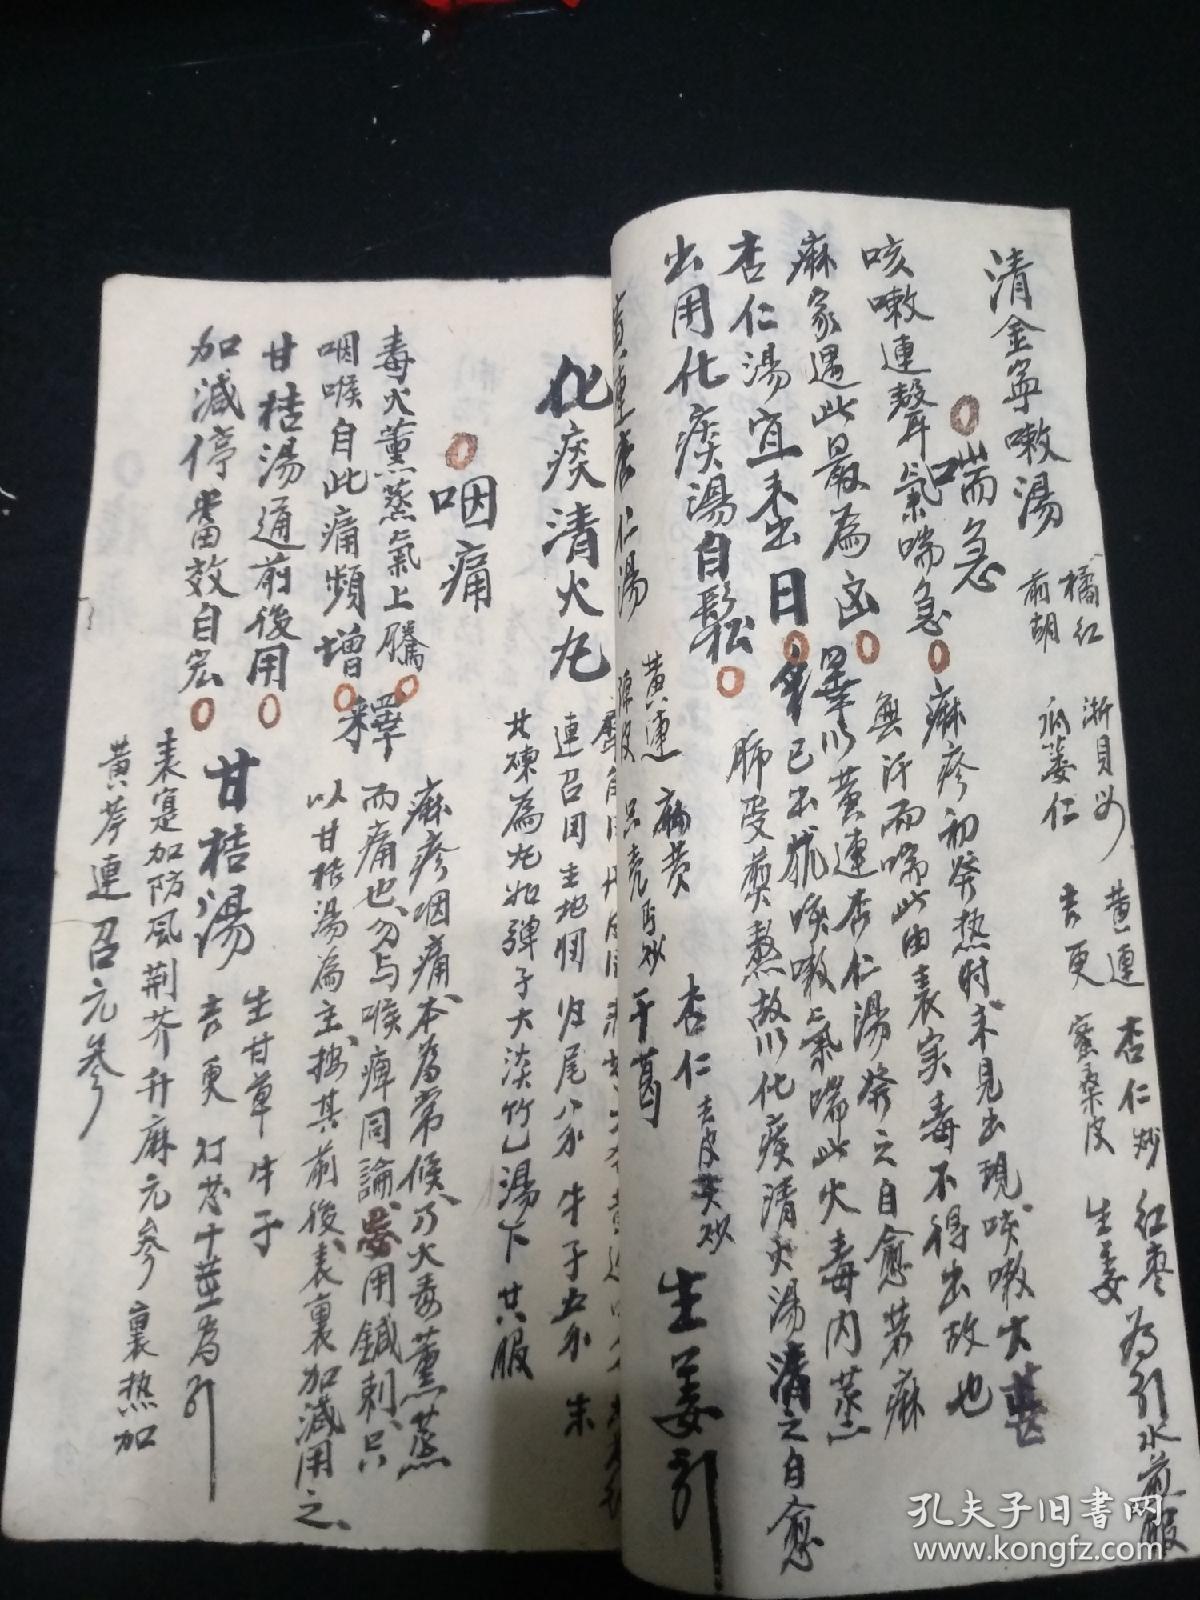 清金寧嗽湯
橘紅
前胡
浙貝
蔞仁
黃連
吉更
杏仁炒
蜜桑皮
紅棗
生姜
為引水煎服
喘急
咳嗽連聲氣喘急
麻疹初發热時未見出現咳嗽大甚
麻家遇此最為凶
無汗而喘此由表实毒不得出故也
杏仁湯宜未出日
釋以黃連杏仁湯發之自愈若麻
已出犹咳嗽氣喘此火毒內蒸
出用化痰湯自鬆
肺受熬故以化痰清火湯清之自愈
黃連杏仁湯
黃連
陳皮
只壳
麻黃
干葛
杏仁去皮
生姜引
化痰清火丸
連召
生地
归尾八分
牛子五分
共煉為丸如彈子大淡竹湯下
咽痛
毒火薰蒸氣上騰
釋
麻疹咽痛本為常候乃火毒薰蒸
咽喉自此痛頻增
而痛也勿与喉痺同論用鍼刺只
甘桔湯通前後用
以甘桔湯為主按其前後表裏加減用之
加減停當效自宏
甘桔湯
生甘草
牛子
吉更
為引
表寔加防風荊芥升麻元參裏热加
黃芩連召元參
孔夫子旧書网
www.kongfz.com